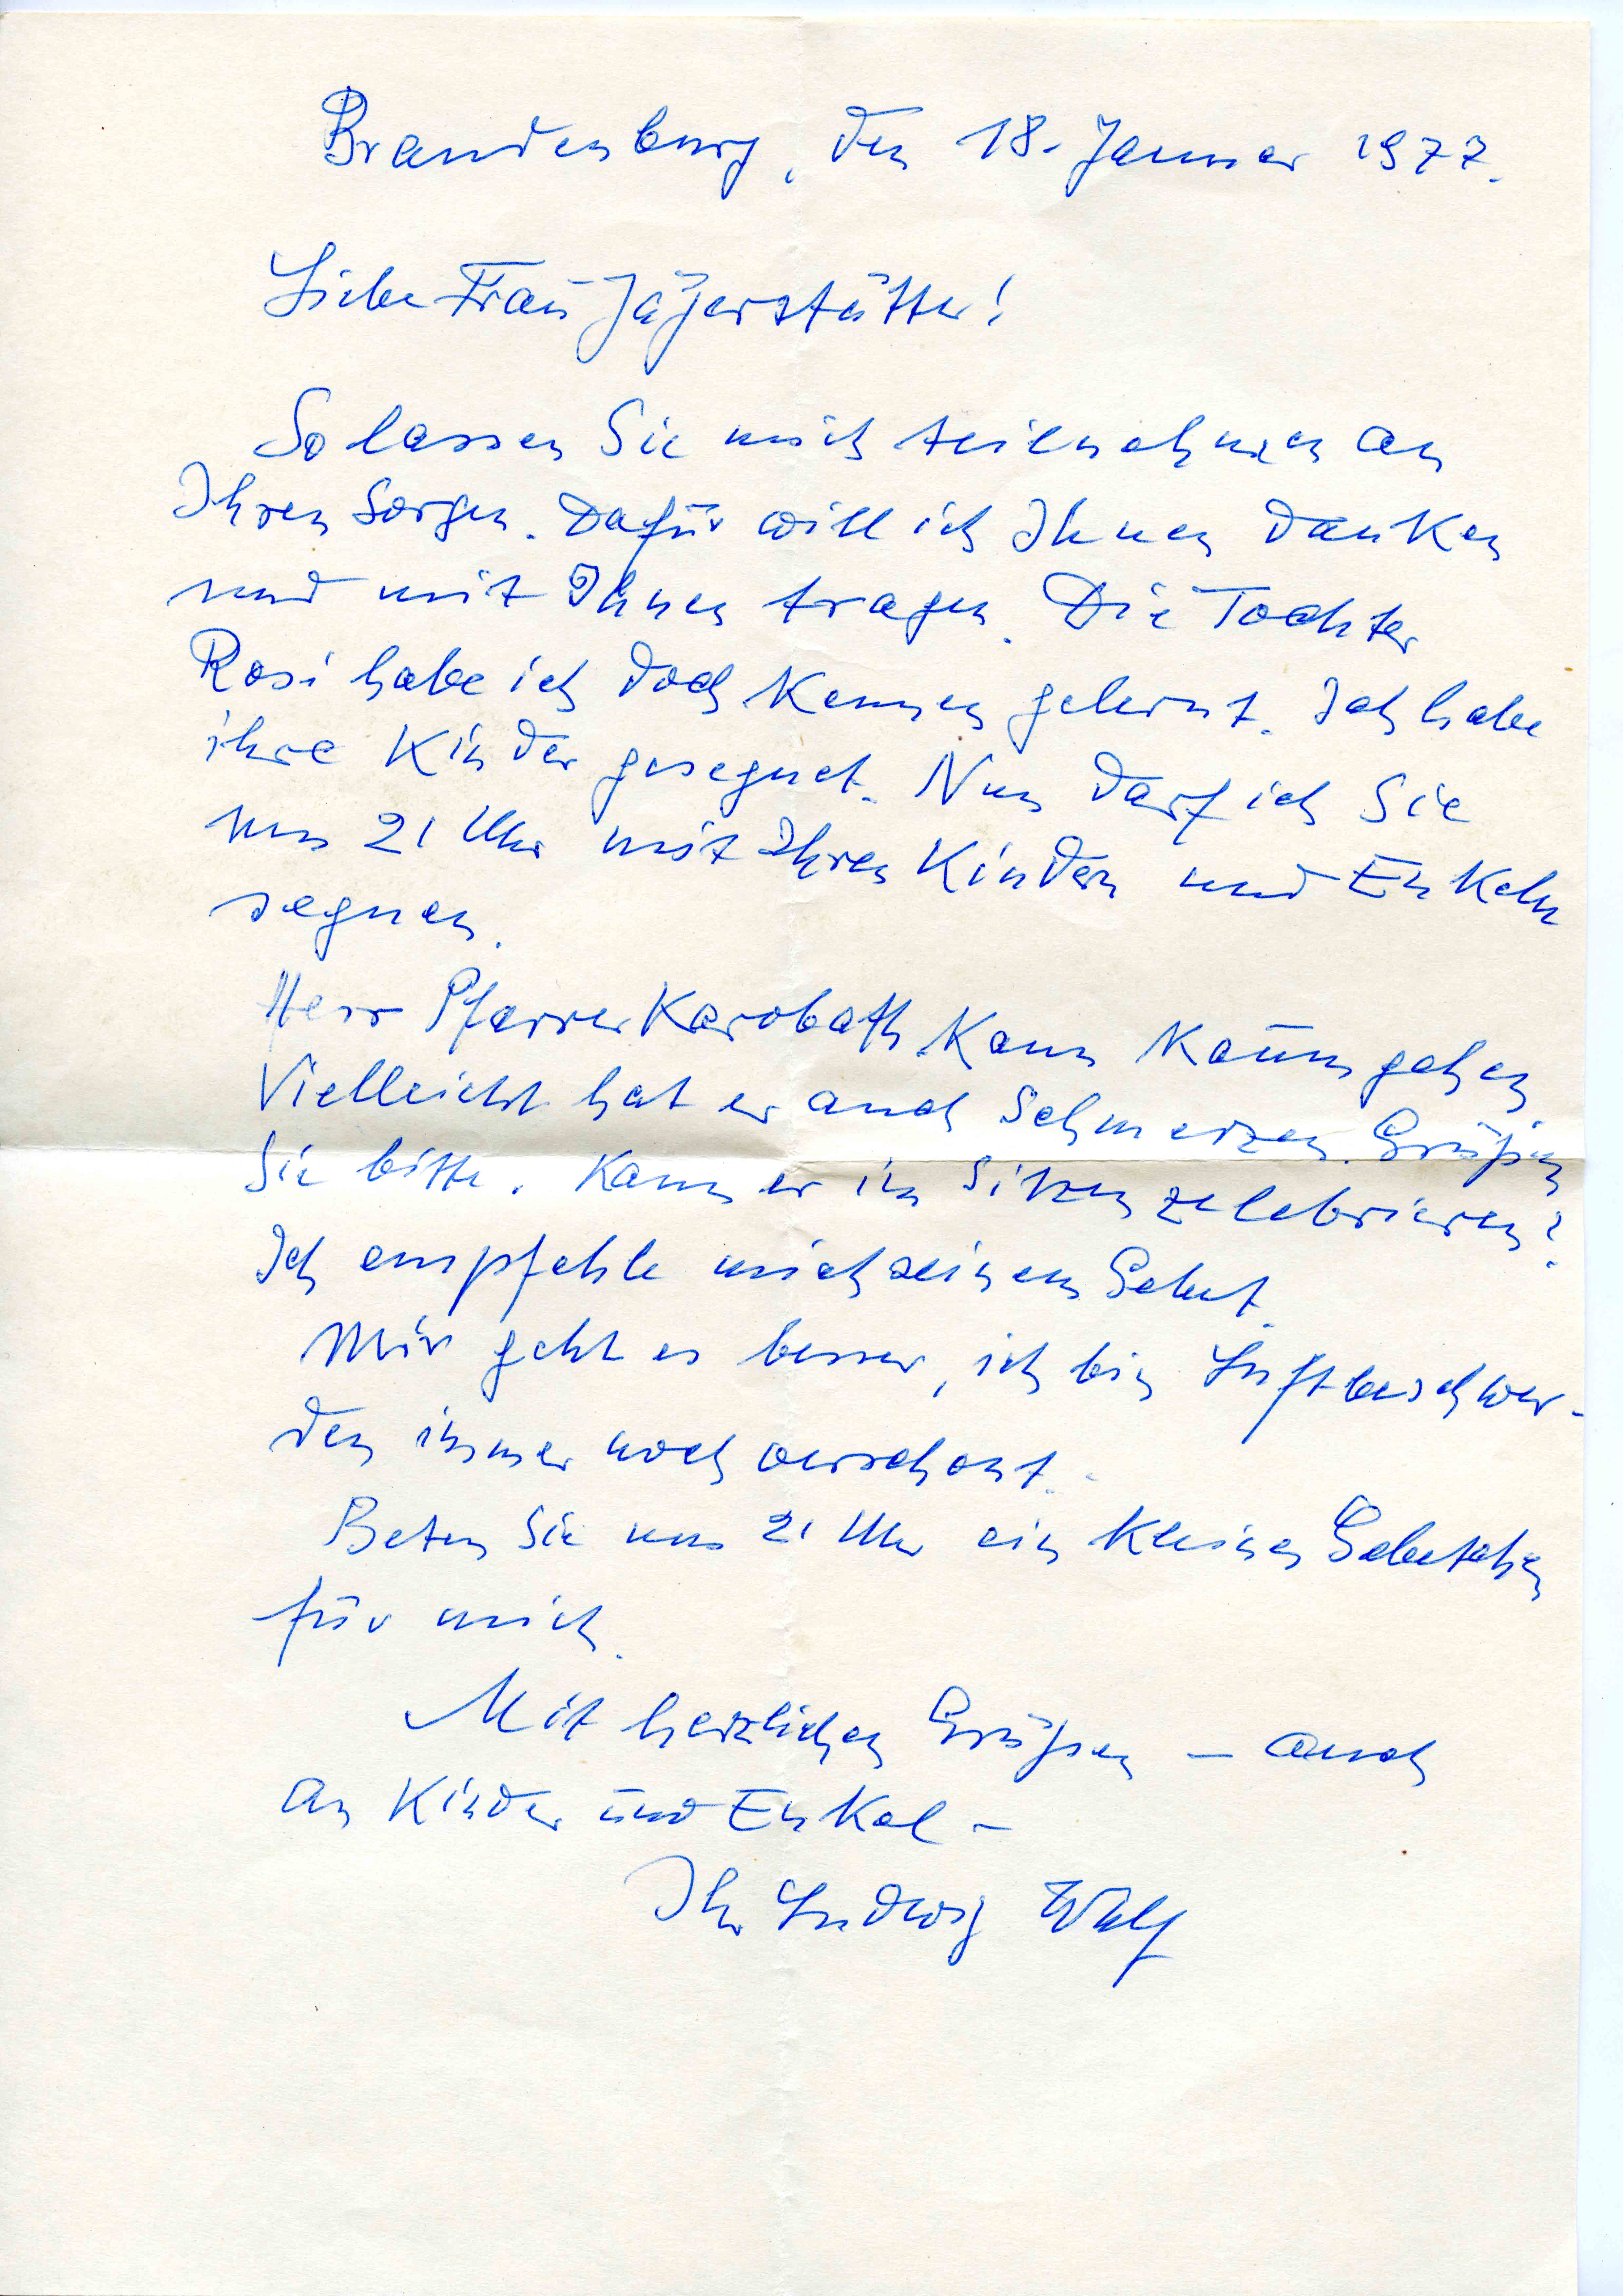 Brandenburg, den 18. Januar 1977.
Liebe Frau Jägerstätter!
So lassen Sie mich teilnehmen an
Ihren Sorgen. Dafür will ich Ihnen danken
und mit Ihnen tragen. Die Tochter
Rosi habe ich doch kennen gelernt. Ich habe
ihre Kinder gesegnet. Nun darf ich Sie
um 21 Uhr mit Ihren Kindern und Enkeln
segnen.
Herr Pfarrer Karobath kann kaum gehen
Vielleicht hat er auch Schmerzen. Grüßen
Sie bitte. Kann er im Sitzen zelebrieren?
Ich empfehle mich seinem Gebet.
Mir geht es besser, ich bin Luftbeschwer-
den immer noch verschont.
Beten Sie um 21 Uhr ein kleines Gebetchen
für mich.
Mit herzlichen Grüßen – auch
an Kinder und Enkel –
Ihr Ludwig Walf